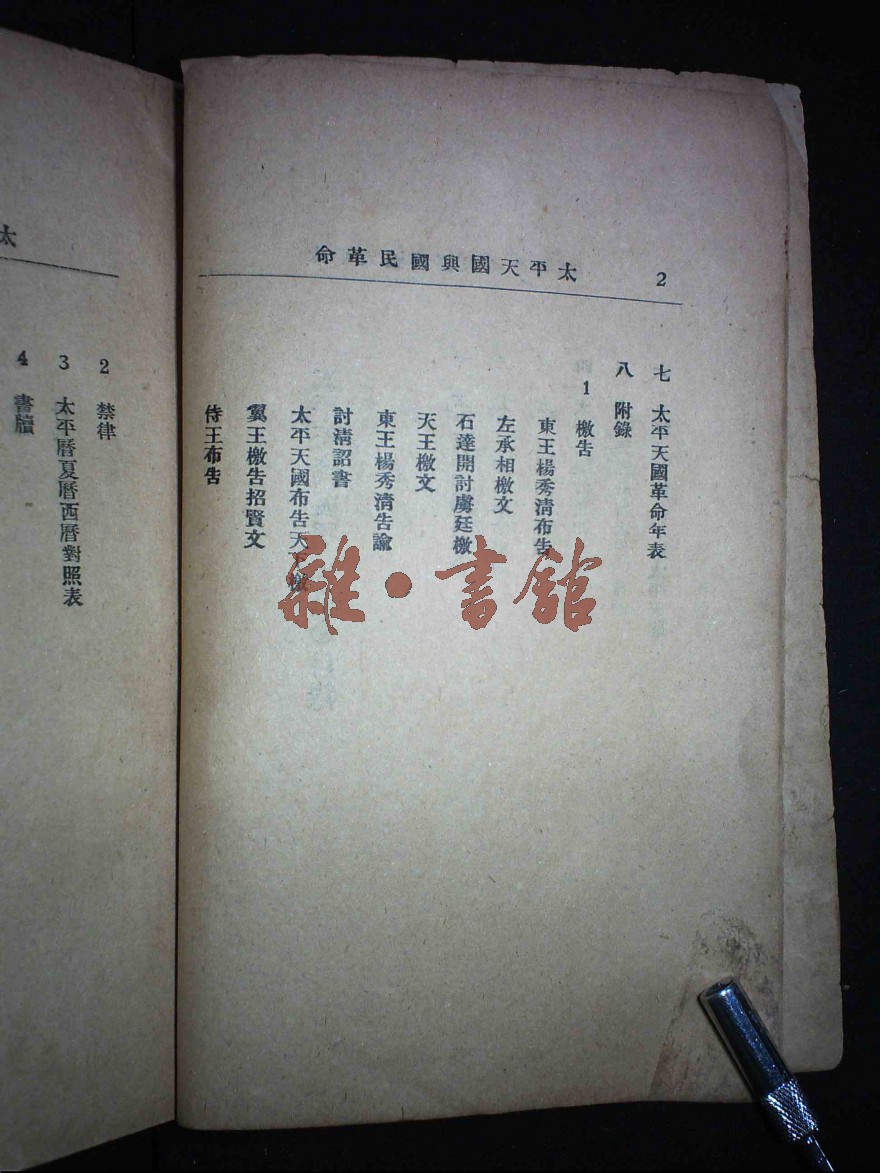 太平天國與國民革命 2
七 太平天國革命年表
八 附錄
1 檄告
東王楊秀淸布告
左承相檄文
石達開討虜廷檄
天王檄文
東王楊秀淸告諭
討淸詔書
太平天國布告天下檄
翼王檄告招賢文
侍王布告
太
2 禁律
3 太平曆夏曆西曆對照表
4 書牘
雜·書館